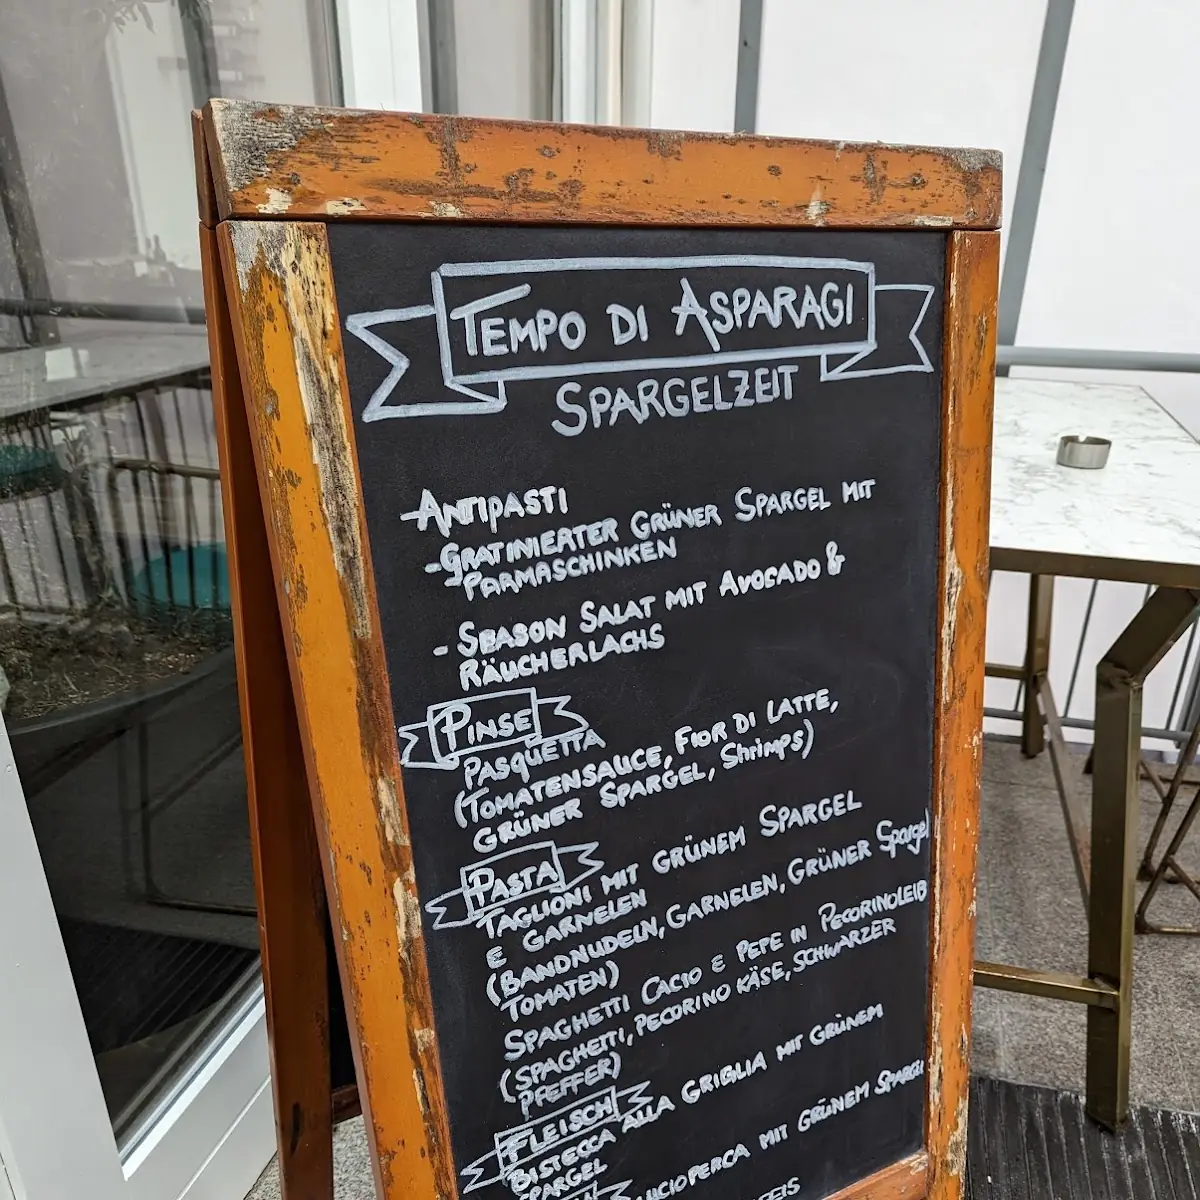 TEMPO DI ASPARAGI
SPARGELZEIT
ANTIPASTI
- GRATINIERTER GRÜNER SPARGEL MIT
- PARMASCHINKEN
- SEASON SALAT MIT AVOCADO &
RÄUCHERLACHS
PINSE
PASQUETTA
(TOMATENSAUCE, FIOR DI LATTE,
GRÜNER SPARGEL, Shrimps)
PASTA
TAGLIONI MIT GRÜNEM SPARGEL
E GARNELEN
(BANDNUDELN, GARNELEN, GRÜNER Spargel
TOMATEN)
SPAGHETTI CACIO E PEPE IN PECORINOLEIB
(SPAGHETTI, PECORINO KÄSE, SCHWARZER
PFEFFER)
FLEISCH
BISTECCA ALLA GRIGLIA MIT GRÜNEM
SPARGEL
LUCIOPERCA MIT GRÜNEM SPARGEL